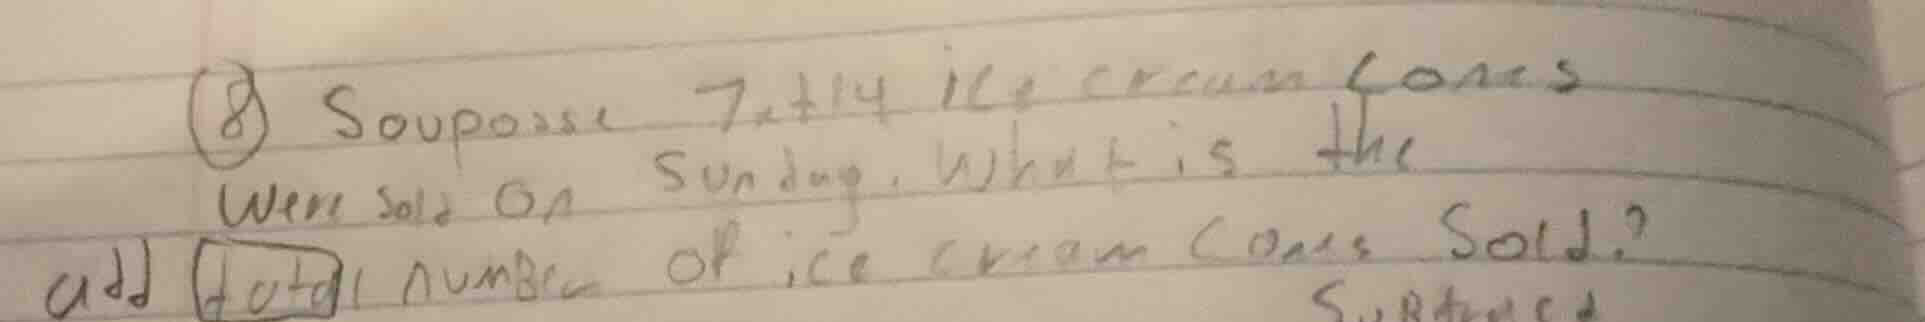 ⑧ Soupose 7,414 ice cream cones
were sold on sunday. What is the
add total number of ice cream cones Sold?